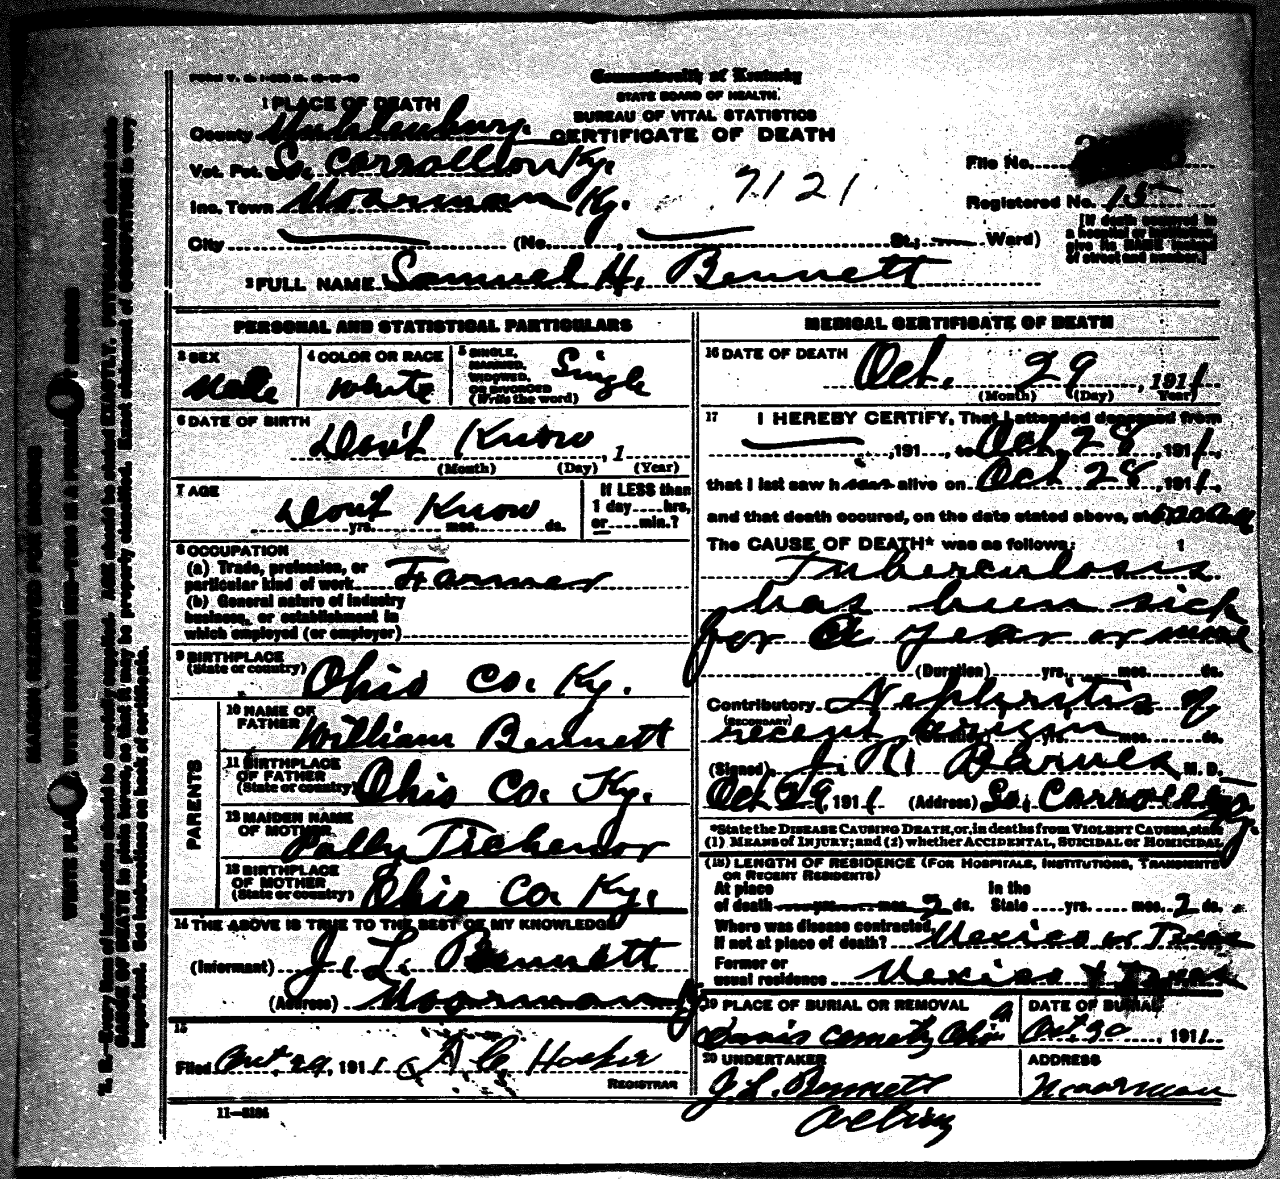 FORM V. S. 1-
Commonwealth of Kentucky
STATE BOARD OF HEALTH.
BUREAU OF VITAL STATISTICS
CERTIFICATE OF DEATH
1 PLACE OF DEATH
County Muhlenburg.
Vot. Pct. So. Carrollton Ky.
Inc. Town Moorman Ky.
7121
File No.
Registered No. 15
City (No. , St.; Ward)
[If death occurred in
a hospital or institution,
give its NAME instead
of street and number.]
2 FULL NAME Samuel H. Bennett
PERSONAL AND STATISTICAL PARTICULARS
3 SEX
Male
4 COLOR OR RACE
White
5 SINGLE,
MARRIED,
WIDOWED,
OR DIVORCED
(Write the word)
Single
6 DATE OF BIRTH
Don't Know , 1
(Month) (Day) (Year)
7 AGE
Don't Know
yrs. mos. ds.
If LESS than
1 day....hrs,
or....min.?
8 OCCUPATION
(a) Trade, profession, or
particular kind of work Farmer
(b) General nature of industry
business, or establishment in
which employed (or employer)
9 BIRTHPLACE
(State or country)
Ohio Co. Ky.
PARENTS
10 NAME OF
FATHER
William Bennett
11 BIRTHPLACE
OF FATHER
(State or country)
Ohio Co. Ky.
12 MAIDEN NAME
OF MOTHER
Polly Tichenor
13 BIRTHPLACE
OF MOTHER
(State or country)
Ohio Co. Ky.
14 THE ABOVE IS TRUE TO THE BEST OF MY KNOWLEDGE
(Informant) J. L. Bennett
(Address) Moorman Ky
15
Filed Oct. 29, 1911
REGISTRAR
11—
MEDICAL CERTIFICATE OF DEATH
16 DATE OF DEATH
Oct. 29, 1911
(Month) (Day) Year)
17 I HEREBY CERTIFY, That I attended deceased from
,191 , to Oct 28 , 1911,
that I last saw him alive on Oct 28, 1911,
and that death occured, on the date stated above, at
The CAUSE OF DEATH* was as follows:
Tuberculosis
has been sick
for a year or more
(Duration) yrs. mos. ds.
Contributory Nephritis of
(SECONDARY)
recent origin
(Duration) yrs. mos. ds.
(Signed) J. R. Barnes M. D.
Oct 29 1911 (Address) So. Carrollton Ky.
*State the DISEASE CAUSING DEATH, or, in deaths from VIOLENT CAUSES, state
(1) MEANS of INJURY; and (2) whether ACCIDENTAL, SUICIDAL or HOMICIDAL
(18) LENGTH OF RESIDENCE (FOR HOSPITALS, INSTITUTIONS, TRANSIENTS
OR RECENT RESIDENTS)
At place
of death yrs. mos. 2 ds.
In the
State yrs. mos. 2 ds.
Where was disease contracted,
If not at place of death? Mexico or Texas
Former or
usual residence Mexico & Texas
19 PLACE OF BURIAL OR REMOVAL
DATE OF BURIAL
Oct. 30, 1911
20 UNDERTAKER
J. L. Bennett
Acting
ADDRESS
Moorman
MARGIN RESERVED FOR BINDING
N. B.—Every item of information should be carefully supplied. AGE should be stated EXACTLY. PHYSICIANS should state
CAUSE OF DEATH in plain terms, so that it may be properly classified. Exact statement of OCCUPATION is very
important. See instructions on back of certificate.